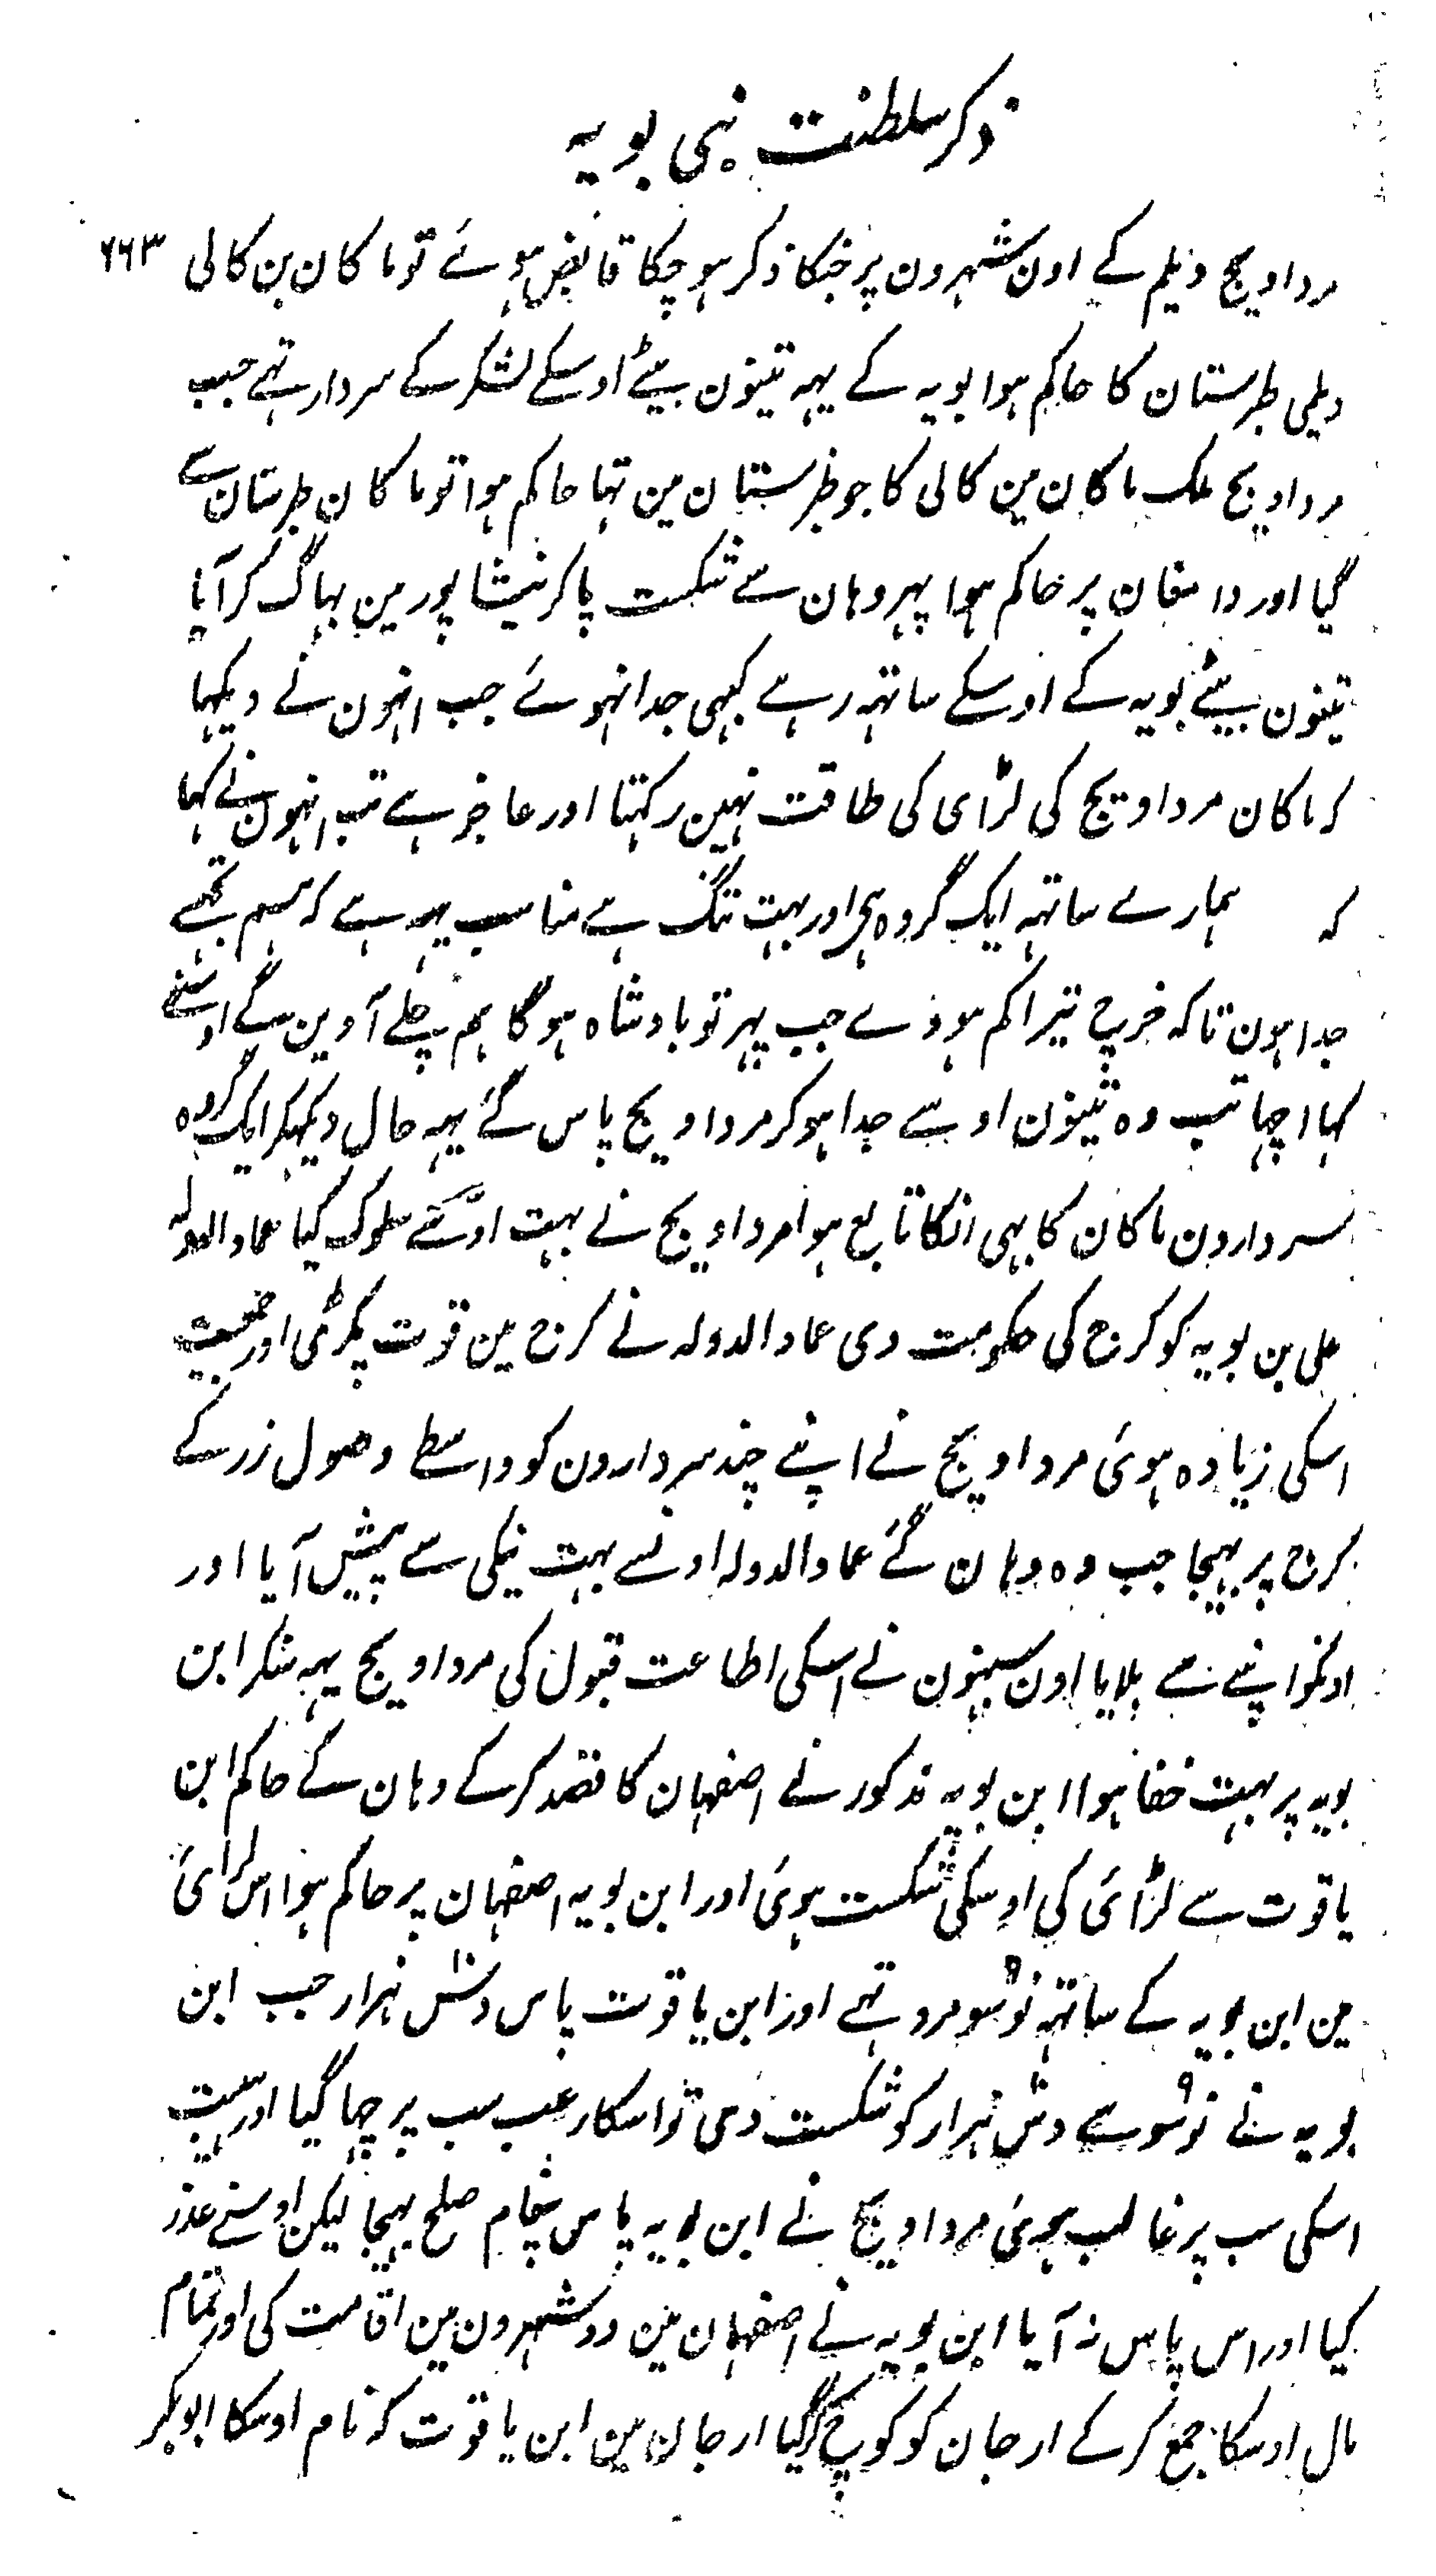 ذکر سلطنت بنی بویہ
مرداویج دیلم کے اون شہرون پر جنکا ذکر ہو چکا قابض ہوئے تو ماکان بن کالی ۶۶۳
دیلمی طبرستان کا حاکم ہوا بویہ کے یہہ تینون بیٹے اوسکے لشکر کے سردار تہے جب
مرداویج ملک ماکان بن کالی کا جو طبرستان مین تہا حاکم ہوا تو ماکان طبرستان سے
گیا اور دامغان پر حاکم ہوا پہر وہان سے شکست پا کر نیشاپور مین بہاگ کر آیا
تینون بیٹے بویہ کے اوسکے ساتہہ رہے کبہی جدا نہوئے جب انہون نے دیکہا
کہ ماکان مرداویج کی لڑای کی طاقت نہین رکہتا اور عاجز ہے تب انہون نے کہا
کہ ہمارے ساتہہ ایک گروہ ہی اور بہت تنگ ہے مناسب یہہ ہے کہ ہم تجھے
جدا ہون تاکہ خرچ تیرا کم ہووے جب پہر تو بادشاہ ہوگا ہم چلے آوین گے اوسنے
کہا اچہا تب وہ تینون اوسے جدا ہو کر مرداویج پاس گئے یہہ حال دیکہکر ایک گروہ
سردارون ماکان کا بہی انکا تابع ہوا مرداویج نے بہت اونسے سلوک کیا عماد الدولہ
علی بن بویہ کو کرج کی حکومت دی عماد الدولہ نے کرج مین قوت پکڑی اور جمعیت
اسکی زیادہ ہوئی مرداویج نے اپنے چند سردارون کو واسطے وصول زر کے
کرج پر بہیجا جب وہ وہان گئے عماد الدولہ اونسے بہت نیکی سے پیش آیا اور
اونکو اپنے سے ملایا اون سبہون نے اسکی اطاعت قبول کی مرداویج یہہ سنکر ابن
بویہ پر بہت خفا ہوا ابن بویہ مذکور نے اصفہان کا قصد کر کے وہان کے حاکم ابن
یاقوت سے لڑائی کی اوسکی شکست ہوئی اور ابن بویہ اصفہان پر حاکم ہوا اس لڑائی
مین ابن بویہ کے ساتہہ نو سو مرد تہے اور ابن یاقوت پاس دس ہزار جب ابن
بویہ نے نو سو سے دس ہزار کو شکست دی تو اسکا رعب سب پر چہا گیا اور ہیبت
اسکی سب پر غالب ہوئی مرداویج نے ابن بویہ پاس پیغام صلح بہیجا لیکن اوسنے عذر
کیا اور اس پاس نہ آیا ابن بویہ نے اصفہان مین دو شہرون مین اقامت کی اور تمام
مال اوسکا جمع کر کے ارجان کو کوچ کر گیا ارجان مین ابن یاقوت کہ نام اوسکا ابوبکر